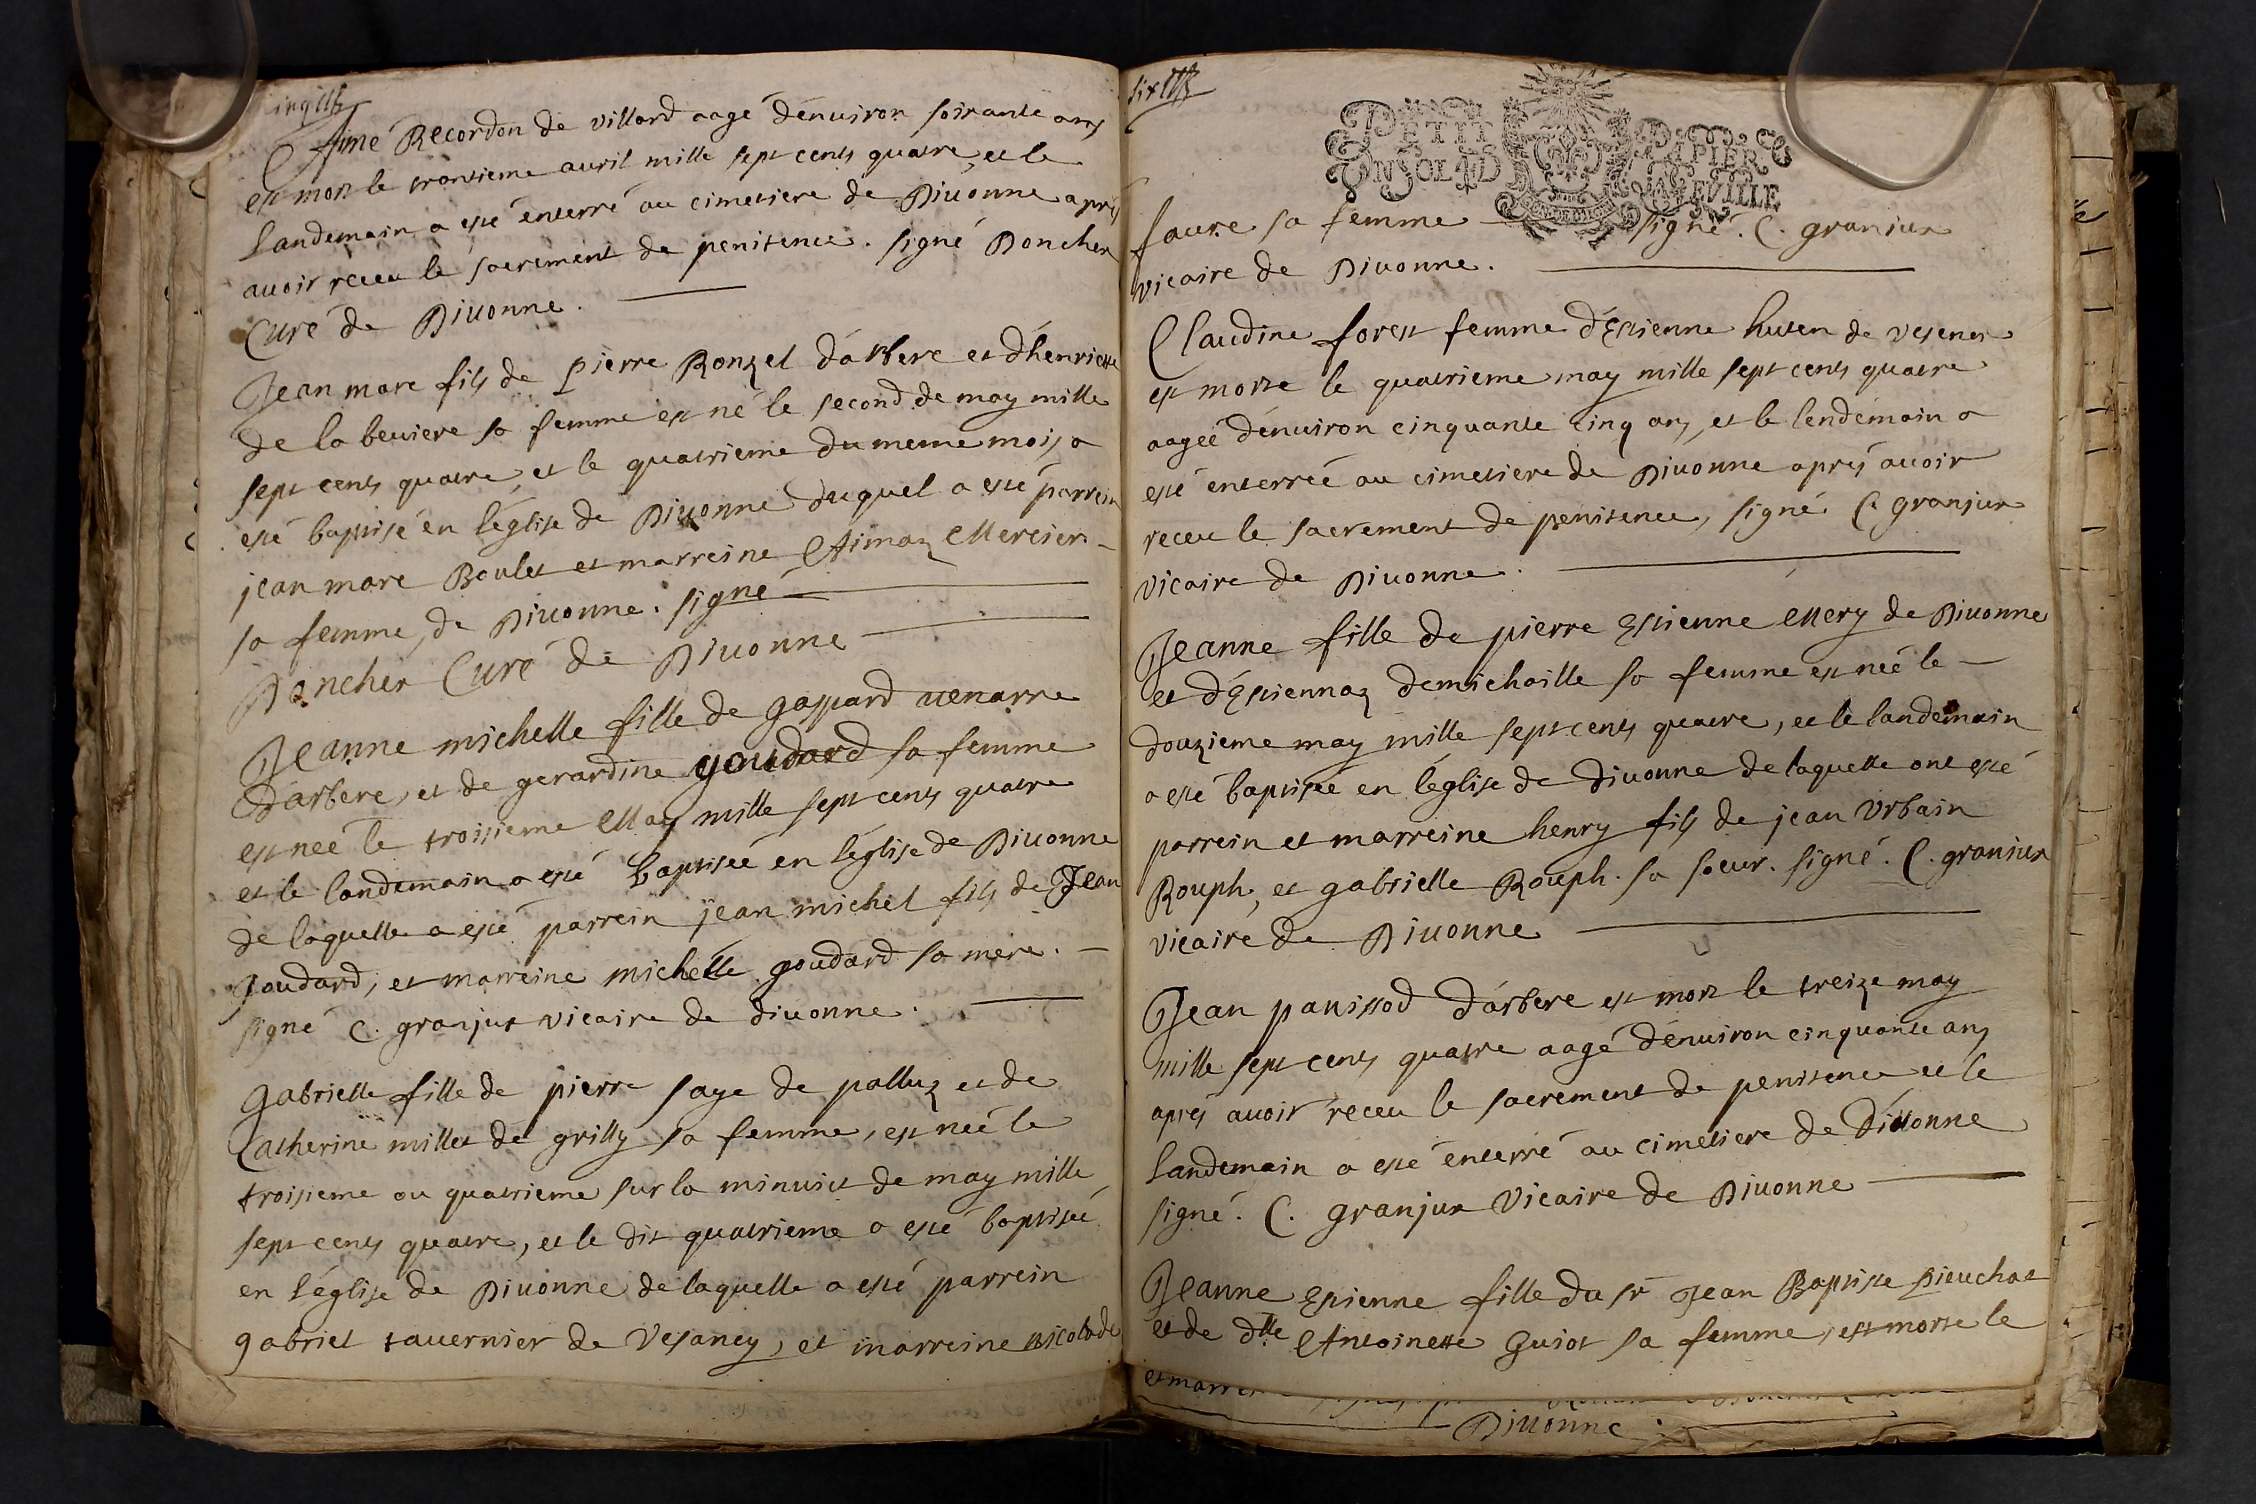 Aimé Recordon de villard aagé d'enuiron soixante ans
est mort le trentieme auril mille sept cents quatre, et le
landemain a esté enterré au cimetiere de Diuonne aprés
auoir receu le sacrement de penitence. signé Doncher
Curé de Diuonne.
Jean marc fils de pierre Ronzel d'arbere et d'henriette
de la beuiere sa femme est né le second de may mille
sept cents quatre, et le quatrieme du meme mois a
esté baptisé en l'église de Diuonne duquel a esté parrein
jean marc Boulet et marreine Aimaz Mercier
sa femme, de Diuonne. signé
Doncher Curé de Diuonne
Jeanne michelle fille de gaspard uenarre
d'arbere, et de gerardine goudard sa femme
est neé le troisieme May mille sept cents quatre
et le landemain a esté baptiseé en l'église de Diuonne
de laquelle a esté parrein jean michel fils de Jean
goudard, et marreine michelle goudard sa mere.
signé C. granjux vicaire de diuonne.
Gabrielle fille de pierre saye de palluz et de
Catherine millet de grilly sa femme, est neé le
troisieme ou quatrieme sur la minuict de may mille
sept cents quatre, et le dit quatrieme a esté baptiseé
en l'église de Diuonne de laquelle a esté parrein
gabriel tauernier de Vesancy, et marreine nicolade
six
PETIT PAPIER
faure sa femme signé. C. granjux
vicaire de Diuonne.
Claudine forest femme d'Estienne huten de vesenex
est morte le quatrieme may mille sept cents quatre
aageé d'enuiron cinquante cinq ans, et le lendemain a
esté enterreé au cimetiere de Diuonne aprés auoir
receu le sacrement de penitence, signé C. granjux
vicaire de Diuonne.
Jeanne fille de pierre Estienne Mery de Diuonne
et d'Estiennaz demichaille sa femme est neé le
douzieme may mille sept cents quatre, et le landemain
a esté baptiseé en l'église de diuonne de laquelle ont esté
parrein et marreine henry fils de jean Vrbain
Rouph, et gabrielle Rouph. sa soeur. signé. C. granjux
vicaire de Diuonne
Jean panissod d'arbere est mort le treize may
mille sept cents quatre aagé d'enuiron cinquante ans
aprés auoir receu le sacrement de penitence et le
landemain a esté enterré au cimetiere de diuonne
signé. C. granjux Vicaire de Diuonne
Jeanne Estienne fille du sr Jean Baptiste Dieuchat
et de dlle Antoinette Guiot sa femme, est morte le
Diuonne